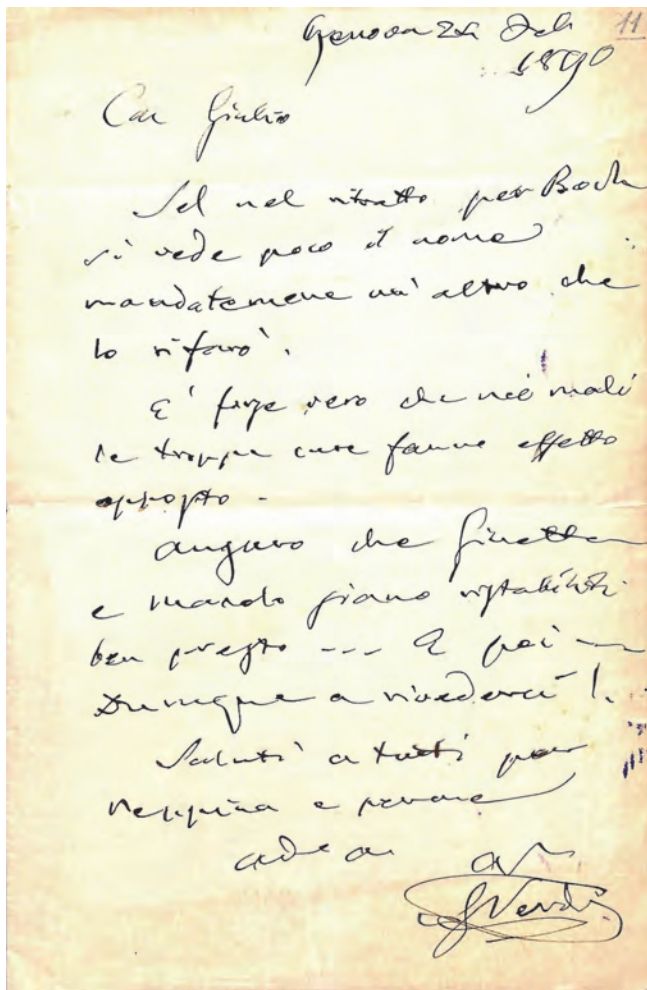 Genova 24 Feb 11
1890
Car Giulio
Sel nel ritratto per Boch
si vede poco il nome
mandatemene un' altro che
lo rifarò.
E' forse vero che nei mali
le troppe cure fanno effetto
opposto -
Auguro che Ginetta
e marito siano ristabiliti
ben presto --- E poi —
Dunque a rivederci!.
Saluti a tutti per
Peppina e per me
ad
G Verdi